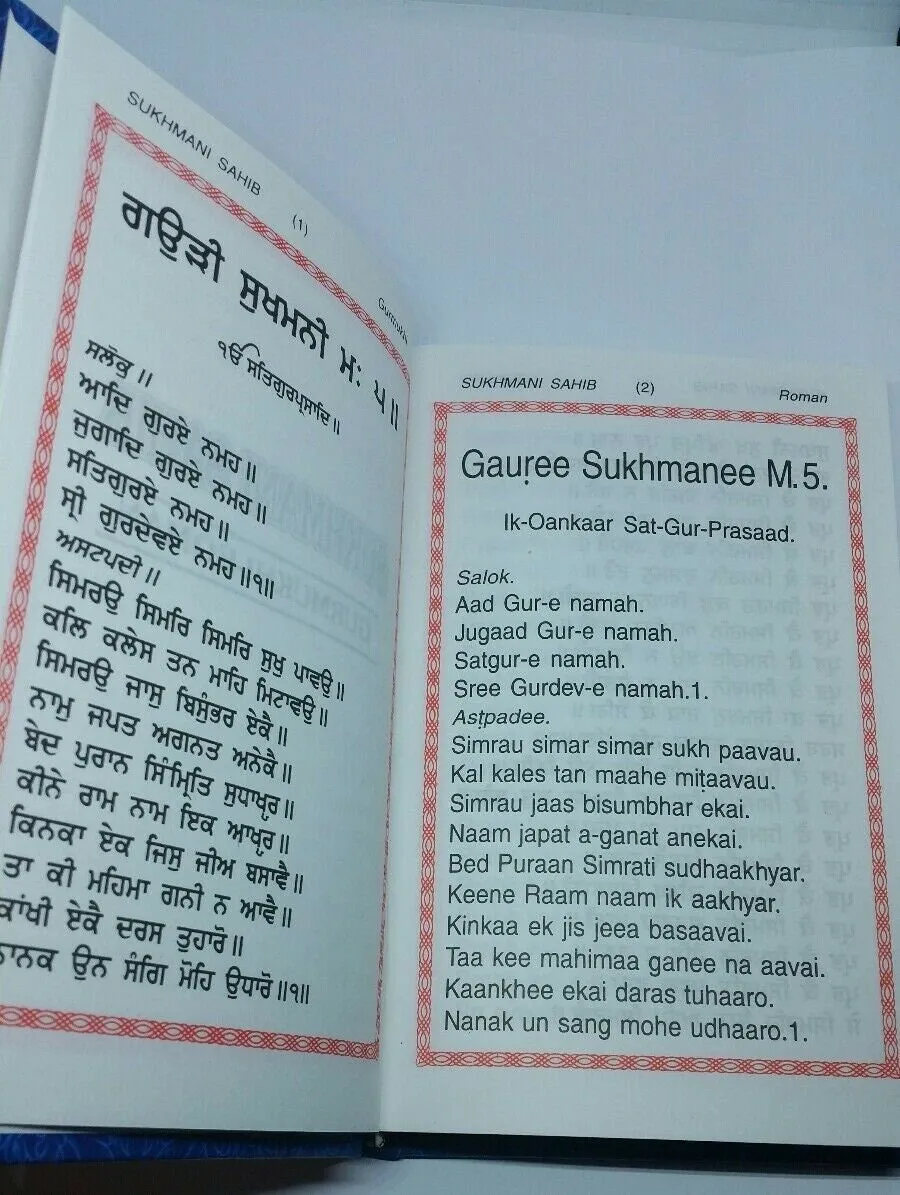 SUKHMANI SAHIB
(1)
Gurmukhi
ਗਉੜੀ ਸੁਖਮਨੀ ਮਃ ੫॥
ੴ ਸਤਿਗੁਰਪ੍ਰਸਾਦਿ॥
ਸਲੋਕੁ॥
ਆਦਿ ਗੁਰਏ ਨਮਹ॥
ਜੁਗਾਦਿ ਗੁਰਏ ਨਮਹ॥
ਸਤਿਗੁਰਏ ਨਮਹ॥
ਸ੍ਰੀ ਗੁਰਦੇਵਏ ਨਮਹ॥੧॥
ਅਸਟਪਦੀ॥
ਸਿਮਰਉ ਸਿਮਰਿ ਸਿਮਰਿ ਸੁਖੁ ਪਾਵਉ॥
ਕਲਿ ਕਲੇਸ ਤਨ ਮਾਹਿ ਮਿਟਾਵਉ॥
ਸਿਮਰਉ ਜਾਸੁ ਬਿਸੁੰਭਰ ਏਕੈ॥
ਨਾਮੁ ਜਪਤ ਅਗਨਤ ਅਨੇਕੈ॥
ਬੇਦ ਪੁਰਾਨ ਸਿੰਮ੍ਰਿਤਿ ਸੁਧਾਖੵਰ॥
ਕੀਨੇ ਰਾਮ ਨਾਮ ਇਕ ਆਖੵਰ॥
ਕਿਨਕਾ ਏਕ ਜਿਸੁ ਜੀਅ ਬਸਾਵੈ॥
ਤਾ ਕੀ ਮਹਿਮਾ ਗਨੀ ਨ ਆਵੈ॥
ਕਾਂਖੀ ਏਕੈ ਦਰਸ ਤੁਹਾਰੋ॥
ਨਾਨਕ ਉਨ ਸੰਗਿ ਮੋਹਿ ਉਧਾਰੋ॥੧॥
SUKHMANI SAHIB (2) Roman
Gauṛee Sukhmanee M.5.
Ik-Oankaar Sat-Gur-Prasaad.
Salok.
Aad Gur-e namah.
Jugaad Gur-e namah.
Satgur-e namah.
Sree Gurdev-e namah.1.
Asṭpadee.
Simrau simar simar sukh paavau.
Kal kales tan maahe miṭaavau.
Simrau jaas bisumbhar ekai.
Naam japat a-ganat anekai.
Bed Puraan Simrati sudhaakhyar.
Keene Raam naam ik aakhyar.
Kinkaa ek jis jeea basaavai.
Taa kee mahimaa ganee na aavai.
Kaankhee ekai daras tuhaaro.
Nanak un sang mohe udhaaro.1.